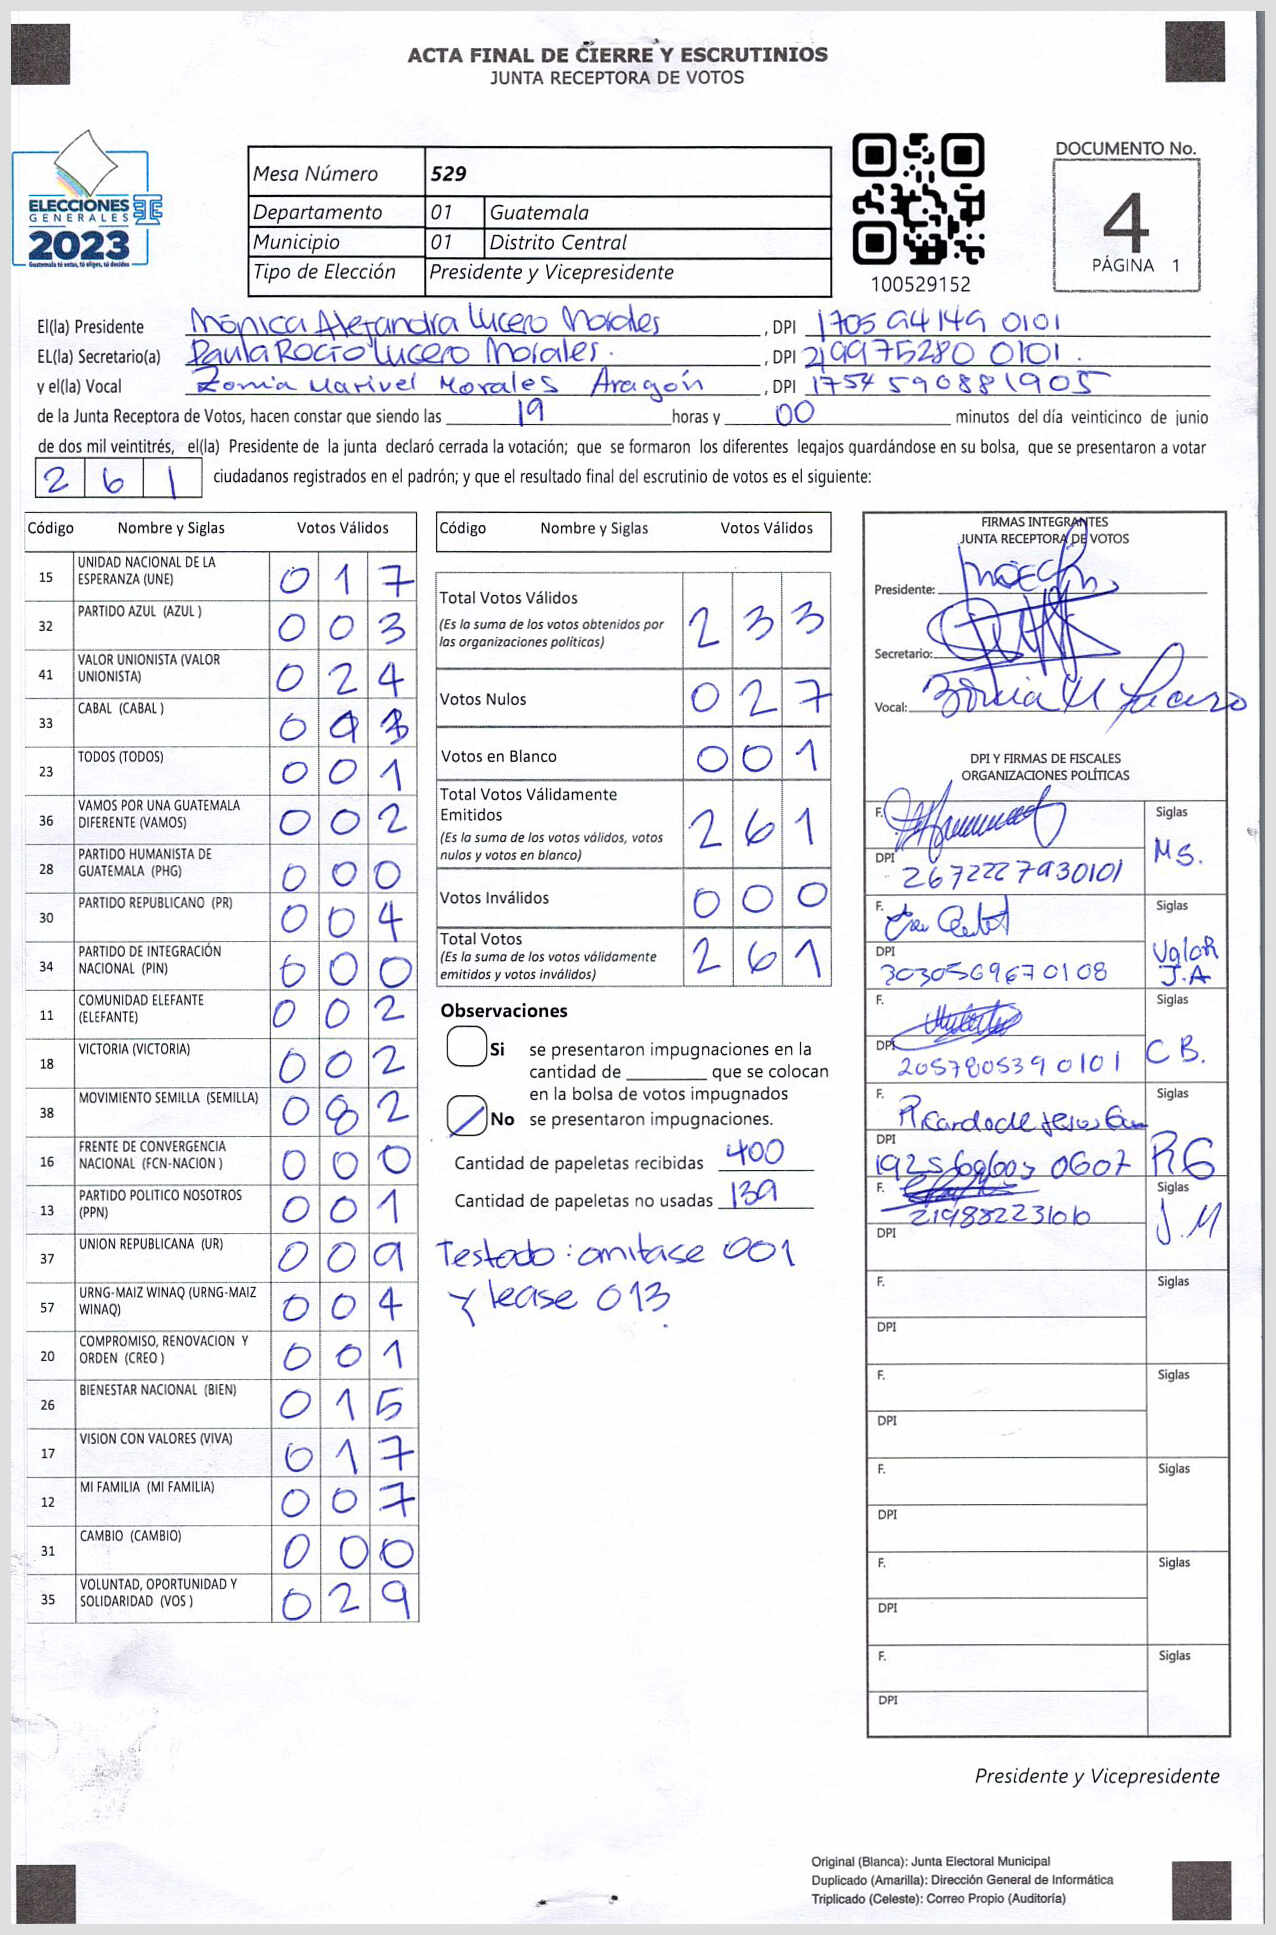 ACTA FINAL DE CIERRE Y ESCRUTINIOS
JUNTA RECEPTORA DE VOTOS
ELECCIONES
GENERALES
2023
Guatemala tú votas, tú eliges, tú decides
Mesa Número 529
Departamento 01 Guatemala
Municipio 01 Distrito Central
Tipo de Elección Presidente y Vicepresidente
100529152
DOCUMENTO No.
4
PÁGINA 1
El(la) Presidente Mónica Alejandra Lucero Morales, DPI 1705 94149 0101
EL(la) Secretario(a) Paula Rocío Lucero Morales., DPI 219975280 0101.
y el(la) Vocal Zonia Marivel Morales Aragón, DPI 1754 590881905
de la Junta Receptora de Votos, hacen constar que siendo las 19 horas y 00 minutos del día veinticinco de junio
de dos mil veintitrés, el(la) Presidente de la junta declaró cerrada la votación; que se formaron los diferentes legajos guardándose en su bolsa, que se presentaron a votar
261 ciudadanos registrados en el padrón; y que el resultado final del escrutinio de votos es el siguiente:
Código Nombre y Siglas Votos Válidos
15 UNIDAD NACIONAL DE LA ESPERANZA (UNE) 017
32 PARTIDO AZUL (AZUL ) 003
41 VALOR UNIONISTA (VALOR UNIONISTA) 024
33 CABAL (CABAL )
23 TODOS (TODOS) 001
36 VAMOS POR UNA GUATEMALA DIFERENTE (VAMOS) 002
28 PARTIDO HUMANISTA DE GUATEMALA (PHG) 000
30 PARTIDO REPUBLICANO (PR) 004
34 PARTIDO DE INTEGRACIÓN NACIONAL (PIN) 000
11 COMUNIDAD ELEFANTE (ELEFANTE) 002
18 VICTORIA (VICTORIA) 002
38 MOVIMIENTO SEMILLA (SEMILLA) 082
16 FRENTE DE CONVERGENCIA NACIONAL (FCN-NACION ) 000
13 PARTIDO POLITICO NOSOTROS (PPN) 001
37 UNION REPUBLICANA (UR) 009
57 URNG-MAIZ WINAQ (URNG-MAIZ WINAQ) 004
20 COMPROMISO, RENOVACION Y ORDEN (CREO ) 001
26 BIENESTAR NACIONAL (BIEN) 015
17 VISION CON VALORES (VIVA) 017
12 MI FAMILIA (MI FAMILIA) 007
31 CAMBIO (CAMBIO) 000
35 VOLUNTAD, OPORTUNIDAD Y SOLIDARIDAD (VOS ) 029
Código Nombre y Siglas Votos Válidos
Total Votos Válidos 233
(Es la suma de los votos obtenidos por
las organizaciones políticas)
Votos Nulos 027
Votos en Blanco 001
Total Votos Válidamente
Emitidos 261
(Es la suma de los votos válidos, votos
nulos y votos en blanco)
Votos Inválidos 000
Total Votos 261
(Es la suma de los votos válidamente
emitidos y votos inválidos)
Observaciones
Si se presentaron impugnaciones en la
cantidad de ________ que se colocan
en la bolsa de votos impugnados
No se presentaron impugnaciones.
Cantidad de papeletas recibidas 400
Cantidad de papeletas no usadas 139
Testado: omitase 001
y lease 013
FIRMAS INTEGRANTES
JUNTA RECEPTORA DE VOTOS
Presidente:
Secretario:
Vocal:
DPI Y FIRMAS DE FISCALES
ORGANIZACIONES POLÍTICAS
F. Siglas
MS.
DPI 2672227930101
F. Siglas
Valor
J.A
DPI 3030569670108
F. Siglas
C B.
DPI 2057805390101
F. Ricardo de Jesus Siglas
DPI 0607 RG
F. Siglas
J.M
DPI
F. Siglas
DPI
F. Siglas
DPI
F. Siglas
DPI
F. Siglas
DPI
F. Siglas
DPI
Presidente y Vicepresidente
Original (Blanca): Junta Electoral Municipal
Duplicado (Amarilla): Dirección General de Informática
Triplicado (Celeste): Correo Propio (Auditoría)